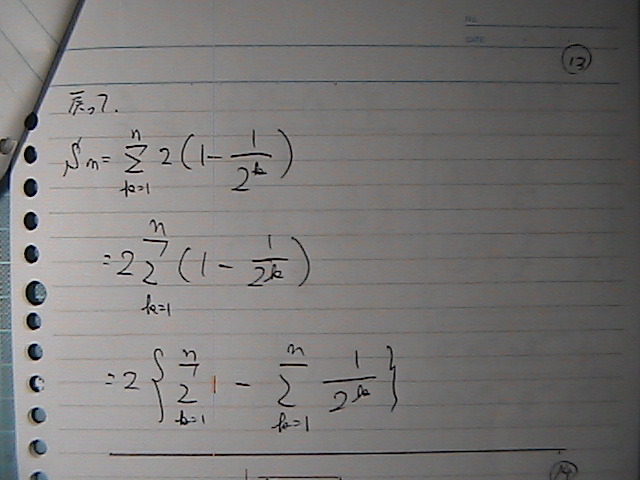 No.
DATE
13
戻って.
Sn = Σ_{k=1}^{n} 2(1 - 1/2^k)
= 2 Σ_{k=1}^{n} (1 - 1/2^k)
= 2 { Σ_{k=1}^{n} 1 - Σ_{k=1}^{n} 1/2^k }
14